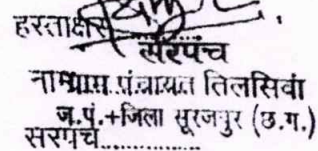 हस्ताक्षर
सरपंच
नाम ग्राम पंचायत तिलसिवां
ज.पं.+जिला सूरजपुर (छ.ग.)
सरपंच..............